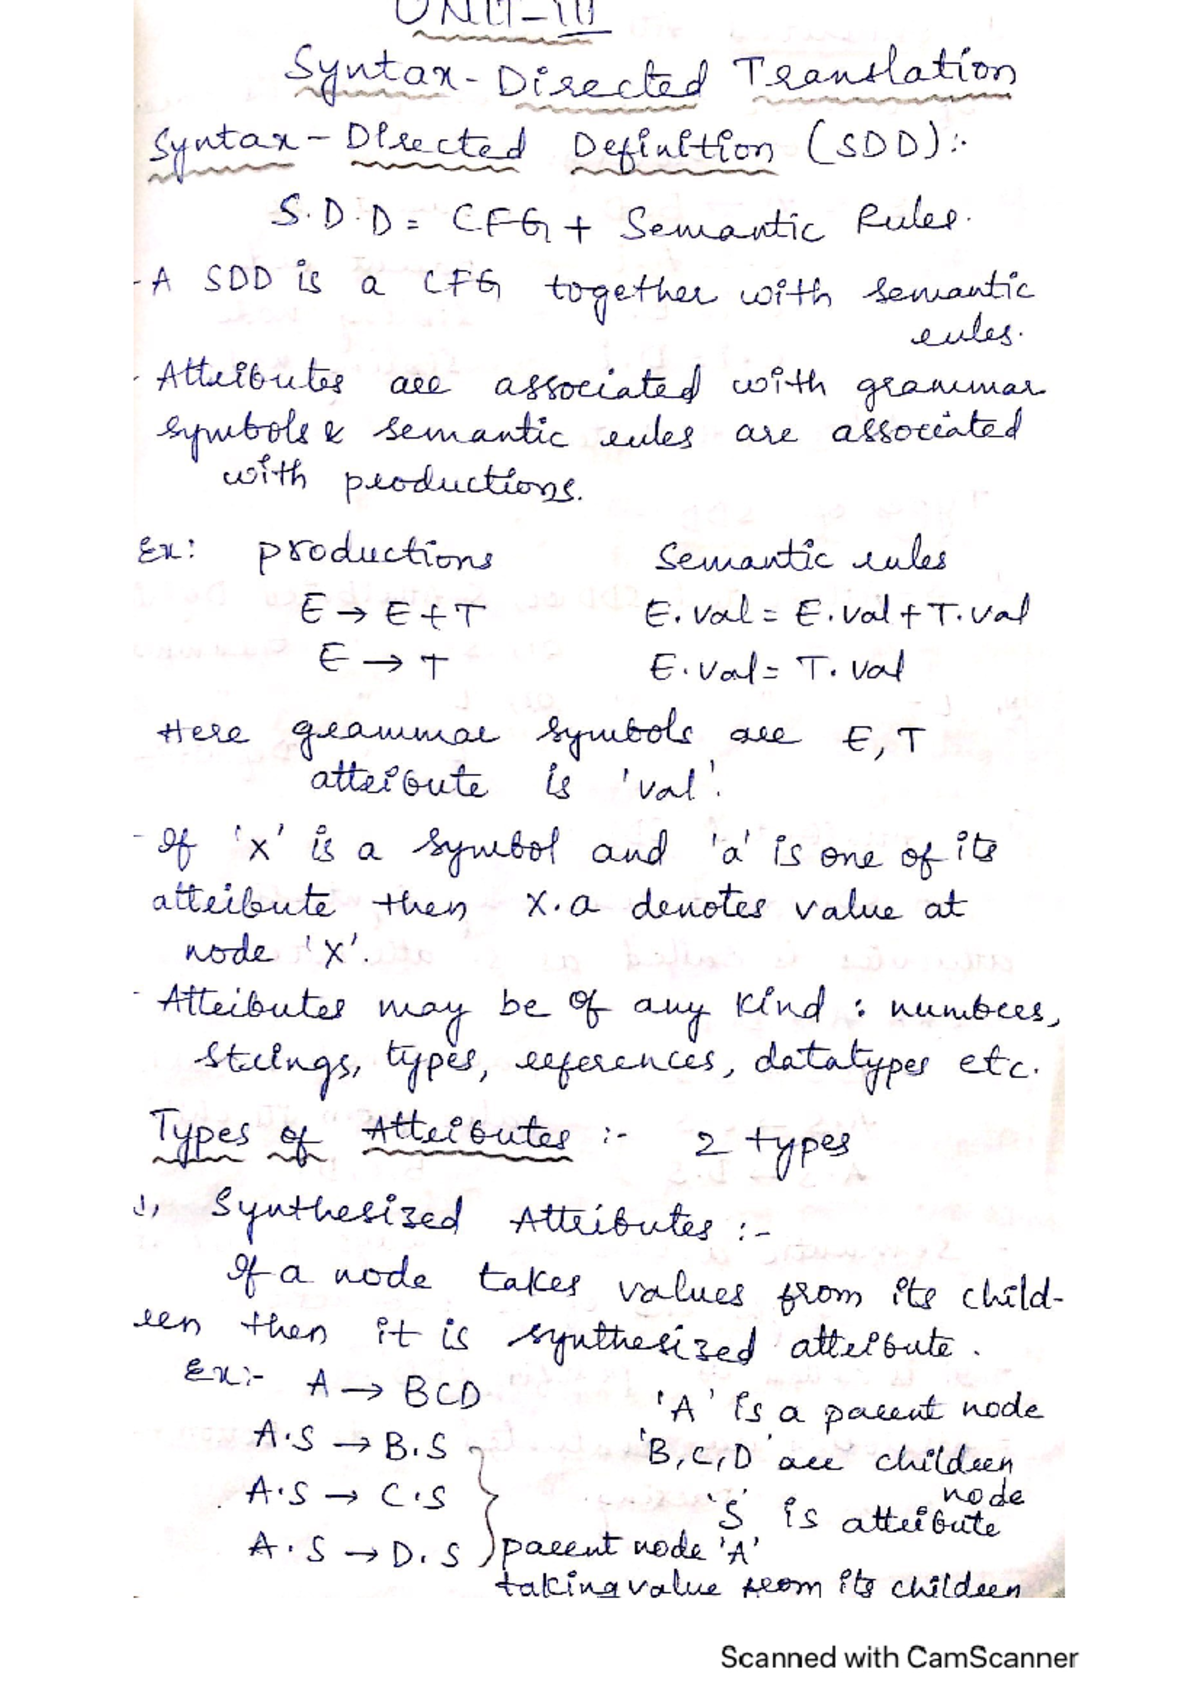 UNIT-III
Syntax-Directed Translation
Syntax-Directed Definition (SDD):-
S.D.D = CFG + Semantic Rules.
- A SDD is a CFG together with semantic
rules.
- Attributes are associated with grammar
symbols & semantic rules are associated
with productions.
Ex: productions Semantic rules
E → E+T E.val = E.val + T.val
E → T E.val = T.val
Here grammar symbols are E, T
attribute is 'val'.
- If 'x' is a symbol and 'a' is one of its
attribute then X.a denotes value at
node 'X'.
- Attributes may be of any kind : numbers,
strings, types, references, datatypes etc.
Types of Attributes :- 2 types
1, Synthesized Attributes :-
If a node takes values from its child-
ren then it is synthesized attribute.
Ex:- A → BCD 'A' is a parent node
A.S → B.S 'B,C,D' are children
node
A.S → C.S 'S' is attribute
A.S → D.S } parent node 'A'
taking value from its children
Scanned with CamScanner